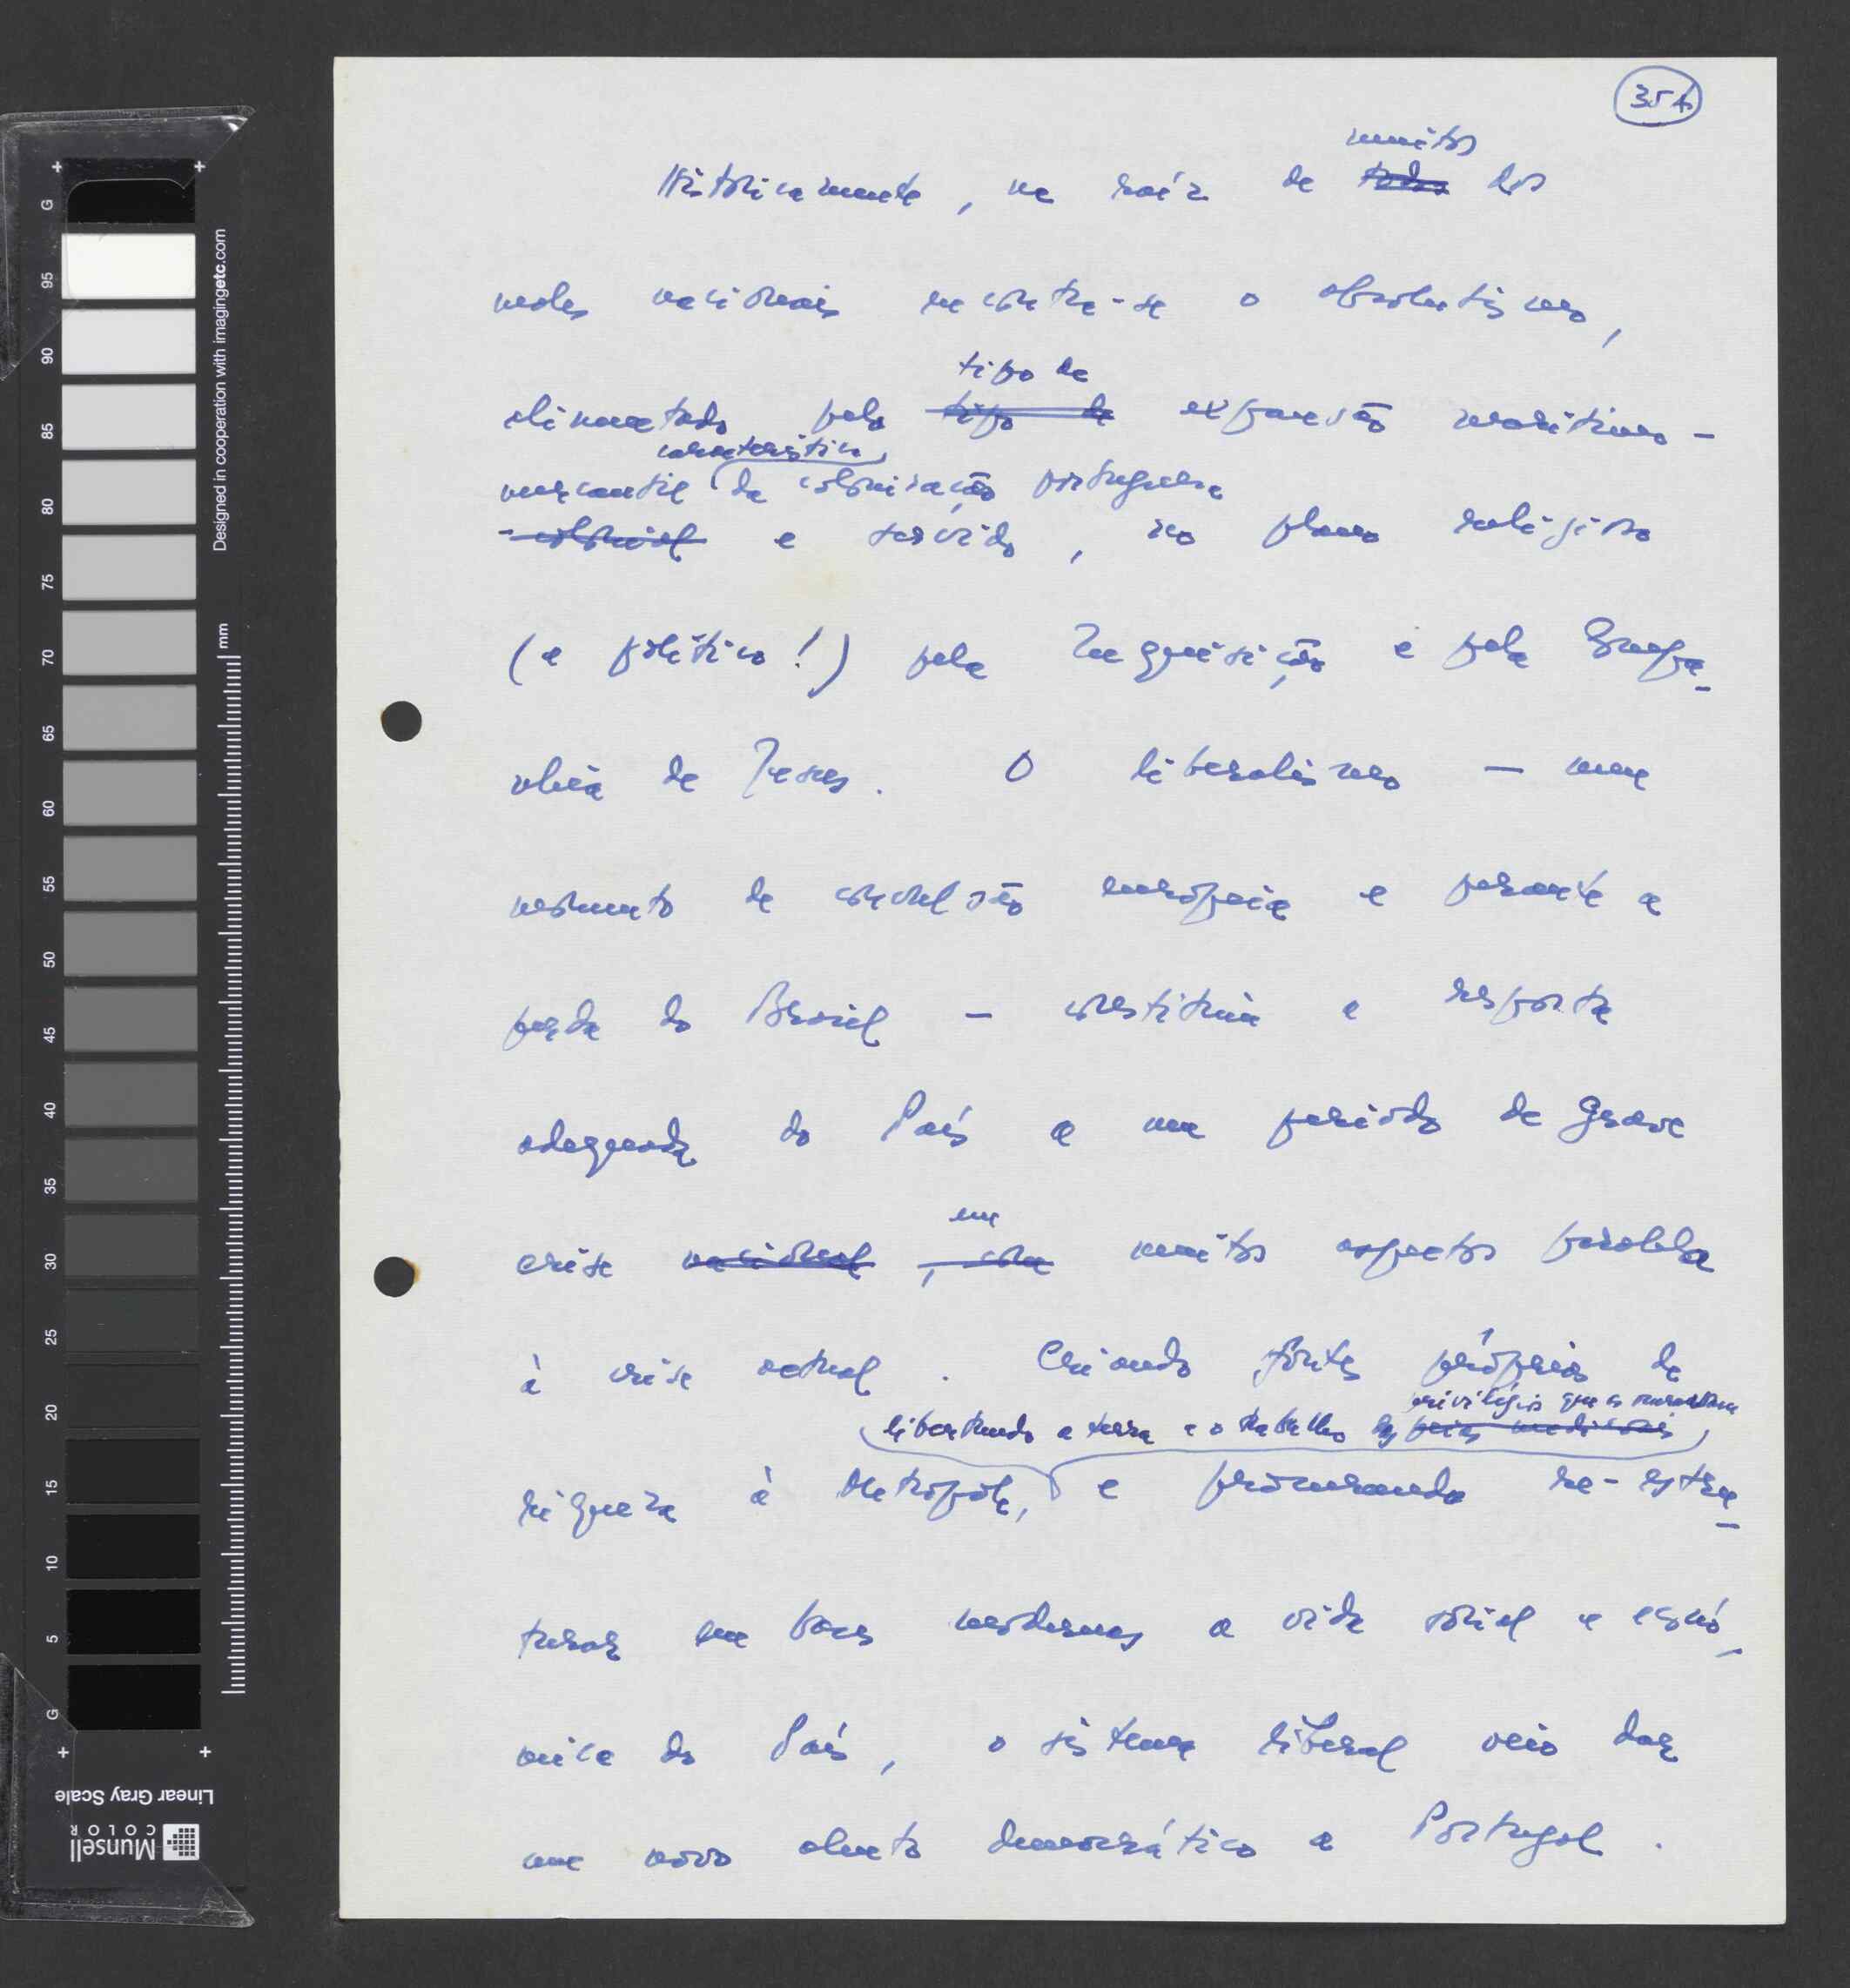 354
muitos
Históricamente, na raíz de todos dos
males nacionais encontra-se o absolutismo,
tipo de
alimentado pelo tipo de expansão marítimo-
característico
mercantil da colonização portuguesa
-colonial e servido, no plano religioso
(e político!) pela Inquisição e pela Compa-
nhia de Jesus. O liberalismo — num
momento de convulsão europeia e perante a
perda do Brasil — constituia a resposta
adequada do País a um período de grave
em
crise nacional, com muitos aspectos paralela
à crise actual. Criando fontes próprias de
privilégios que as
libertando a terra e o trabalho dos
riqueza à Metrópole, e procurando re-estru-
turar em bases modernas a vida social e econó-
mica do País, o sistema liberal veio dar
um novo alento democrático a Portugal.
G
95
90
85
80
75
70
65
60
55
50
45
40
35
30
25
20
15
10
5
G
Designed in cooperation with imagingetc.com
mm
Linear Gray Scale
Munsell
COLOR